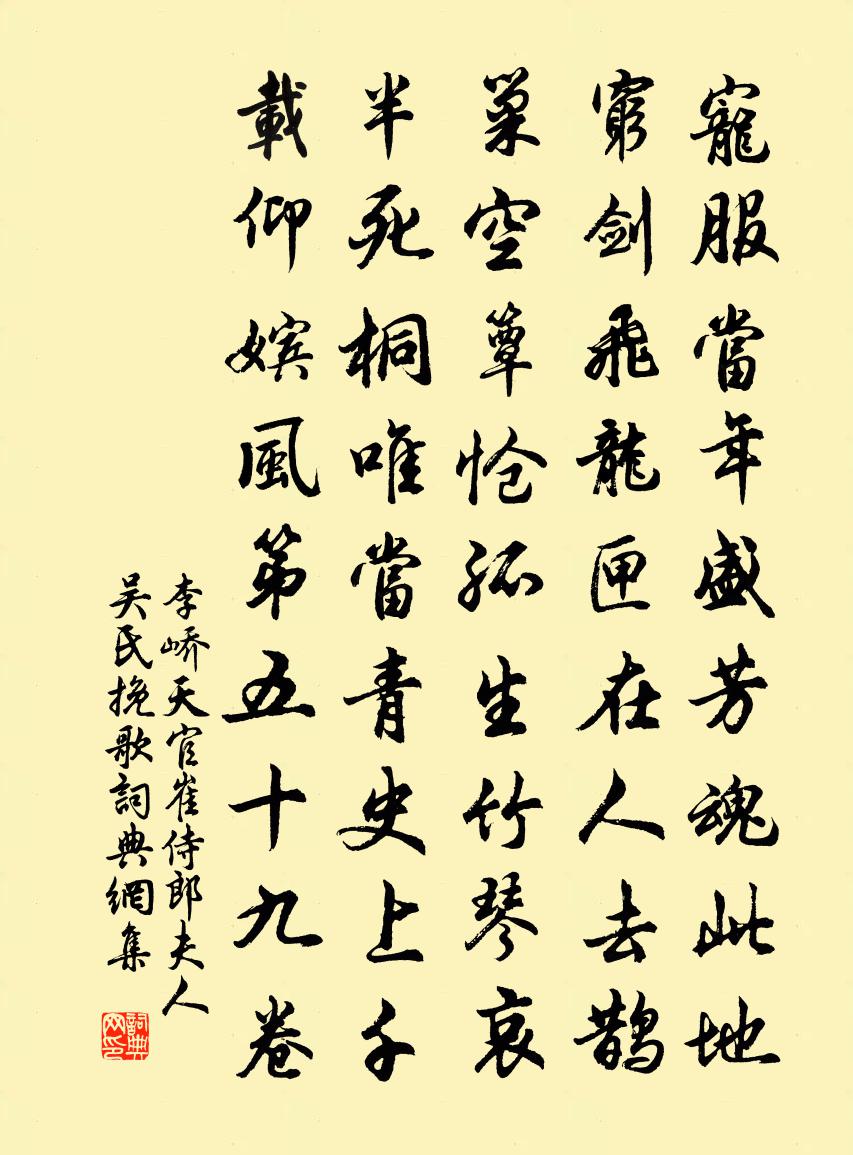 寵服當年盛芳魂此地
窮劍飛龍匣在人去鵲
巢空簟愴孤生竹琴哀
半死桐唯當青史上千
載仰嬪風第五十九卷
李嶠天官崔侍郎夫人
吴氏挽歌詞典網集
詞典網印